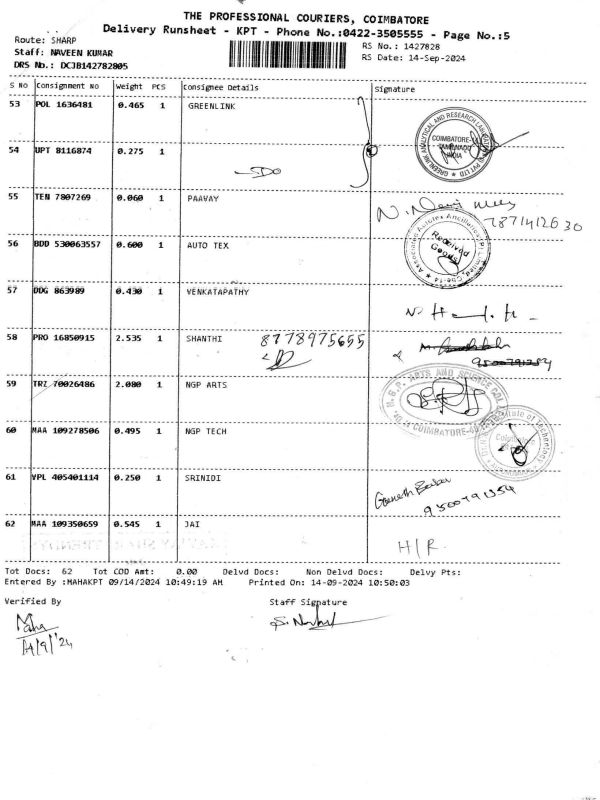 THE PROFESSIONAL COURIERS, COIMBATORE
Delivery Runsheet - KPT - Phone No.:0422-3505555 - Page No.:5
Route: SHARP
RS No.: 1427828
Staff: NAVEEN KUMAR
RS Date: 14-Sep-2024
DRS No.: DCJB142782805
S No Consignment No Weight PCS Consignee Details Signature
53 POL 1636481 0.465 1 GREENLINK
GREENLINK ANALYTICAL AND RESEARCH LABORATORY
COIMBATORE
INDIA
54 UPT 8116874 0.275 1
55 TEN 7807269 0.060 1 PAAVAY
7871412630
56 BDD 530063557 0.600 1 AUTO TEX
Associated Autotex Ancillaries (P) Limited, Cbe-14
Received
Goods
57 DDG 863989 0.430 1 VENKATAPATHY
58 PRO 16850915 2.535 1 SHANTHI 8778975655
9500791354
59 TRZ 70026486 2.080 1 NGP ARTS
N.G.P. ARTS AND SCIENCE COL
COIMBATORE-48
60 MAA 109278506 0.495 1 NGP TECH
Institute of Technology
Coimbatore
61 VPL 405401114 0.250 1 SRINIDI
9500791354
62 MAA 109350659 0.545 1 JAI
H/R.
Tot Docs: 62 Tot COD Amt: 0.00 Delvd Docs: Non Delvd Docs: Delvy Pts:
Entered By :MAHAKPT 09/14/2024 10:49:19 AM Printed On: 14-09-2024 10:50:03
Verified By Staff Signature
Maha
14/9/24